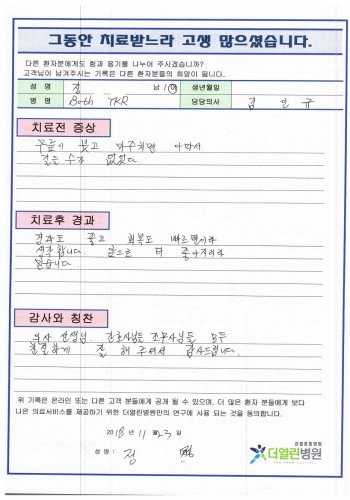 그동안 치료받느라 고생 많으셨습니다.
다른 환자분에게도 힘과 용기를 나누어 주시겠습니까?
고객님이 남겨주시는 기록은 다른 환자분들의 희망이 됩니다.
성 명 정 남 / 여 생년월일
병 명 Both TKR 담당의사 김 인 규
치료전 증상
무릎이 붓고 아파서
걸을 수가 없었다
치료후 경과
경과도 좋고 회복도 빠르편이라
생각합니다. 앞으로 더 좋아지리라
믿습니다
감사와 칭찬
의사 선생님, 간호사님들 조무사님들 모두
친절하게 잘 해 주셔서 감사드립니다.
위 기록은 온라인 또는 다른 고객 분들에게 공개 될 수 있으며, 더 많은 환자 분들에게 보다
나은 의료서비스를 제공하기 위한 더열린병원만의 연구에 사용 되는 것을 동의합니다.
2018 년 11 월 23 일
성 명 : 정
관절중점병원
더열린병원